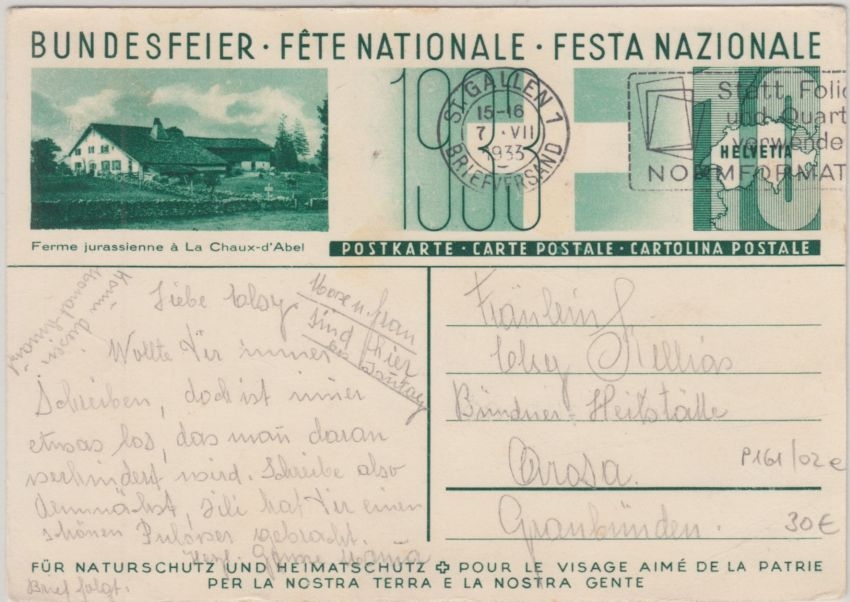 BUNDESFEIER · FÊTE NATIONALE · FESTA NAZIONALE
1933
ST. GALLEN 1
15-16
7. VII
1933
BRIEFVERSAND
Statt Folio
und Quart
verwende
NORMFORMAT
HELVETIA
10
Ferme jurassienne à La Chaux-d'Abel
POSTKARTE · CARTE POSTALE · CARTOLINA POSTALE
Liebe Elsy.
sind hier
Wollte Dir immer
Schreiben, doch ist immer
etwas los, das man daran
verhindert wird. Schreibe also
demnächst, Lili hat Dir einen
schönen Pullover gebracht.
Herzl. Grüsse Maria
Brief folgt.
Fräulein
Elsy
Bündner-Heilstätte
Arosa.
Graubünden.
P161/02e
30€
FÜR NATURSCHUTZ UND HEIMATSCHUTZ POUR LE VISAGE AIMÉ DE LA PATRIE
PER LA NOSTRA TERRA E LA NOSTRA GENTE